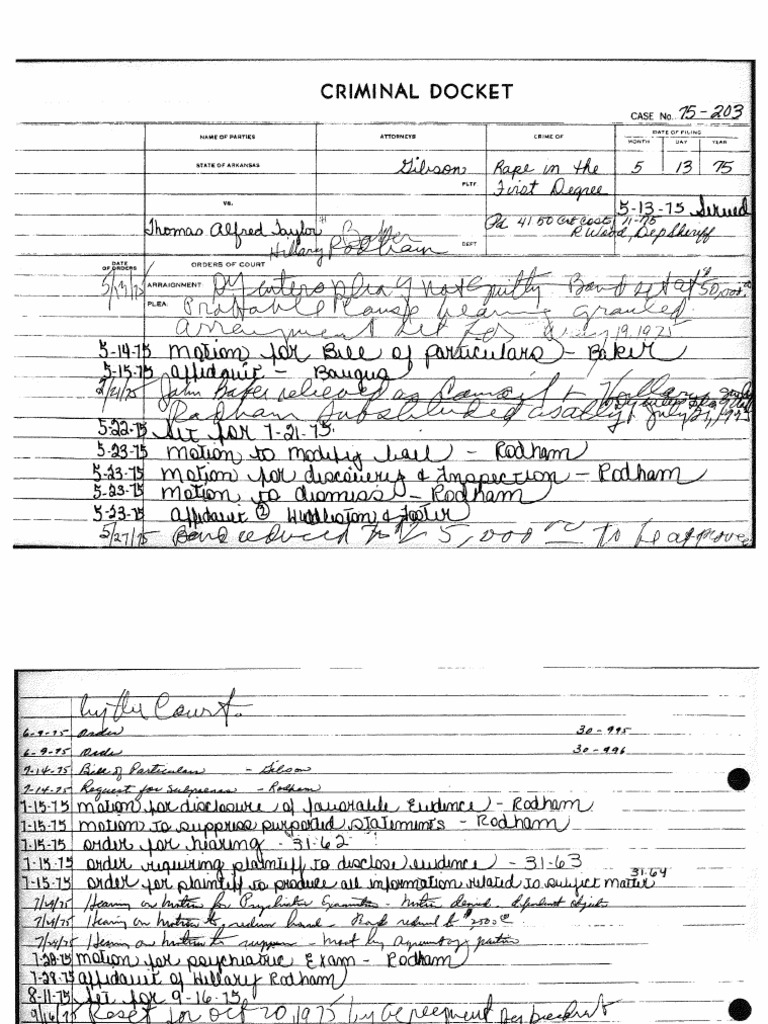 CRIMINAL DOCKET
CASE No. 75-203
NAME OF PARTIES ATTORNEYS CRIME OF DATE OF FILING
MONTH DAY YEAR
STATE OF ARKANSAS Gibson Rape in the 5 13 75
PLTF First Degree
VS. 5-13-75 Served
Thomas Alfred Taylor Baker Pd 41.50 Crt Cost 11-75
Hillary Rodham DEFT R Wood, Dep Sheriff
DATE OF ORDERS ORDERS OF COURT
ARRAIGNMENT enters plea of not guilty Bond set at $50,000.00
PLEA: Probable Cause hearing granted
set for 19, 1975
5-14-75 Motion for Bill of particulars - Baker
5-15-75 affidavit - Baugus
John Baker relieved as &
Rodham Substituted as atty July 21, 1975
5-22-75 Set for 7-21-75.
5-23-75 Motion to modify bail - Rodham
5-23-75 Motion for discovery & Inspection - Rodham
5-23-75 Motion to dismiss - Rodham
5-23-75 affidavit (2) Huddleston & Foster
5/27/75 Bond reduced to 5,000 00 to be approved
by the Court.
6-9-75 Order 30-995
6-9-75 Order 30-996
7-14-75 Bill of Particulars - Gibson
7-14-75 Request for Subpoenas - Rodham
7-15-75 motion for disclosure of favorable Evidence - Rodham
7-15-75 motion to suppress purported statements - Rodham
7-15-75 order for hearing - 31-62
7-15-75 order requiring plaintiff to disclose evidence - 31-63
7-15-75 order for plaintiff to produce all information related to subject matter 31-64
Hearing on Motion for Psychiatric Examination - Motion denied. Defendant objects
Hearing on Motion to reduce bond - Bond reduced to
Hearing on Motion to suppress - Moot by Agreement of parties
7-28-75 motion for psychiatric Exam - Rodham
7-28-75 affidavit of Hillary Rodham
8-11-75 Set for 9-16-75
9/16/75 Reset for Oct 20, 1975 by agreement